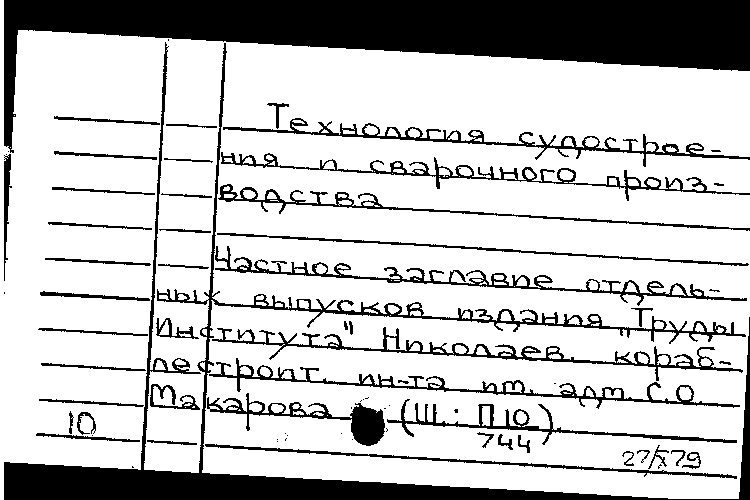 Технология судострое-
ния и сварочного произ-
водства
Частное заглавие отдель-
ных выпусков издания „Труды
Института" Николаев. кораб-
лестроит. ин-та им. адм. С.О.
Макарова (Ш.: П10).
744
10
27/X79